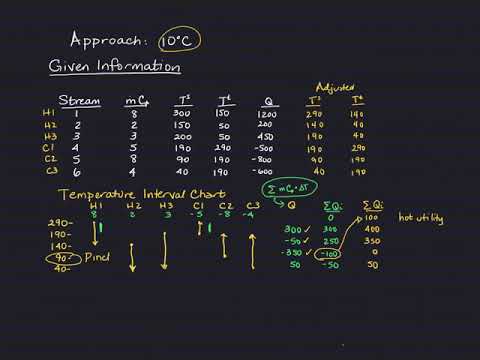 Approach: 10°C
Given Information
Adjusted
Stream mCp Tˢ Tᵗ Q Tˢ Tᵗ
H1 1 8 300 150 1200 290 140
H2 2 2 150 50 200 140 40
H3 3 3 200 50 450 190 40
C1 4 5 190 290 -500 190 290
C2 5 8 90 190 -800 90 190
C3 6 4 40 190 -600 40 190
Σ mCp·ΔT
Temperature Interval Chart
H1 H2 H3 C1 C2 C3 Q ΣQi ΣQi
8 2 3 -5 -8 -4 0 100 hot utility
290-
300 ✓ 300 400
190-
-50 ✓ 250 350
140-
-350 ✓ -100 0
90- Pincl
50 -50 50
40-